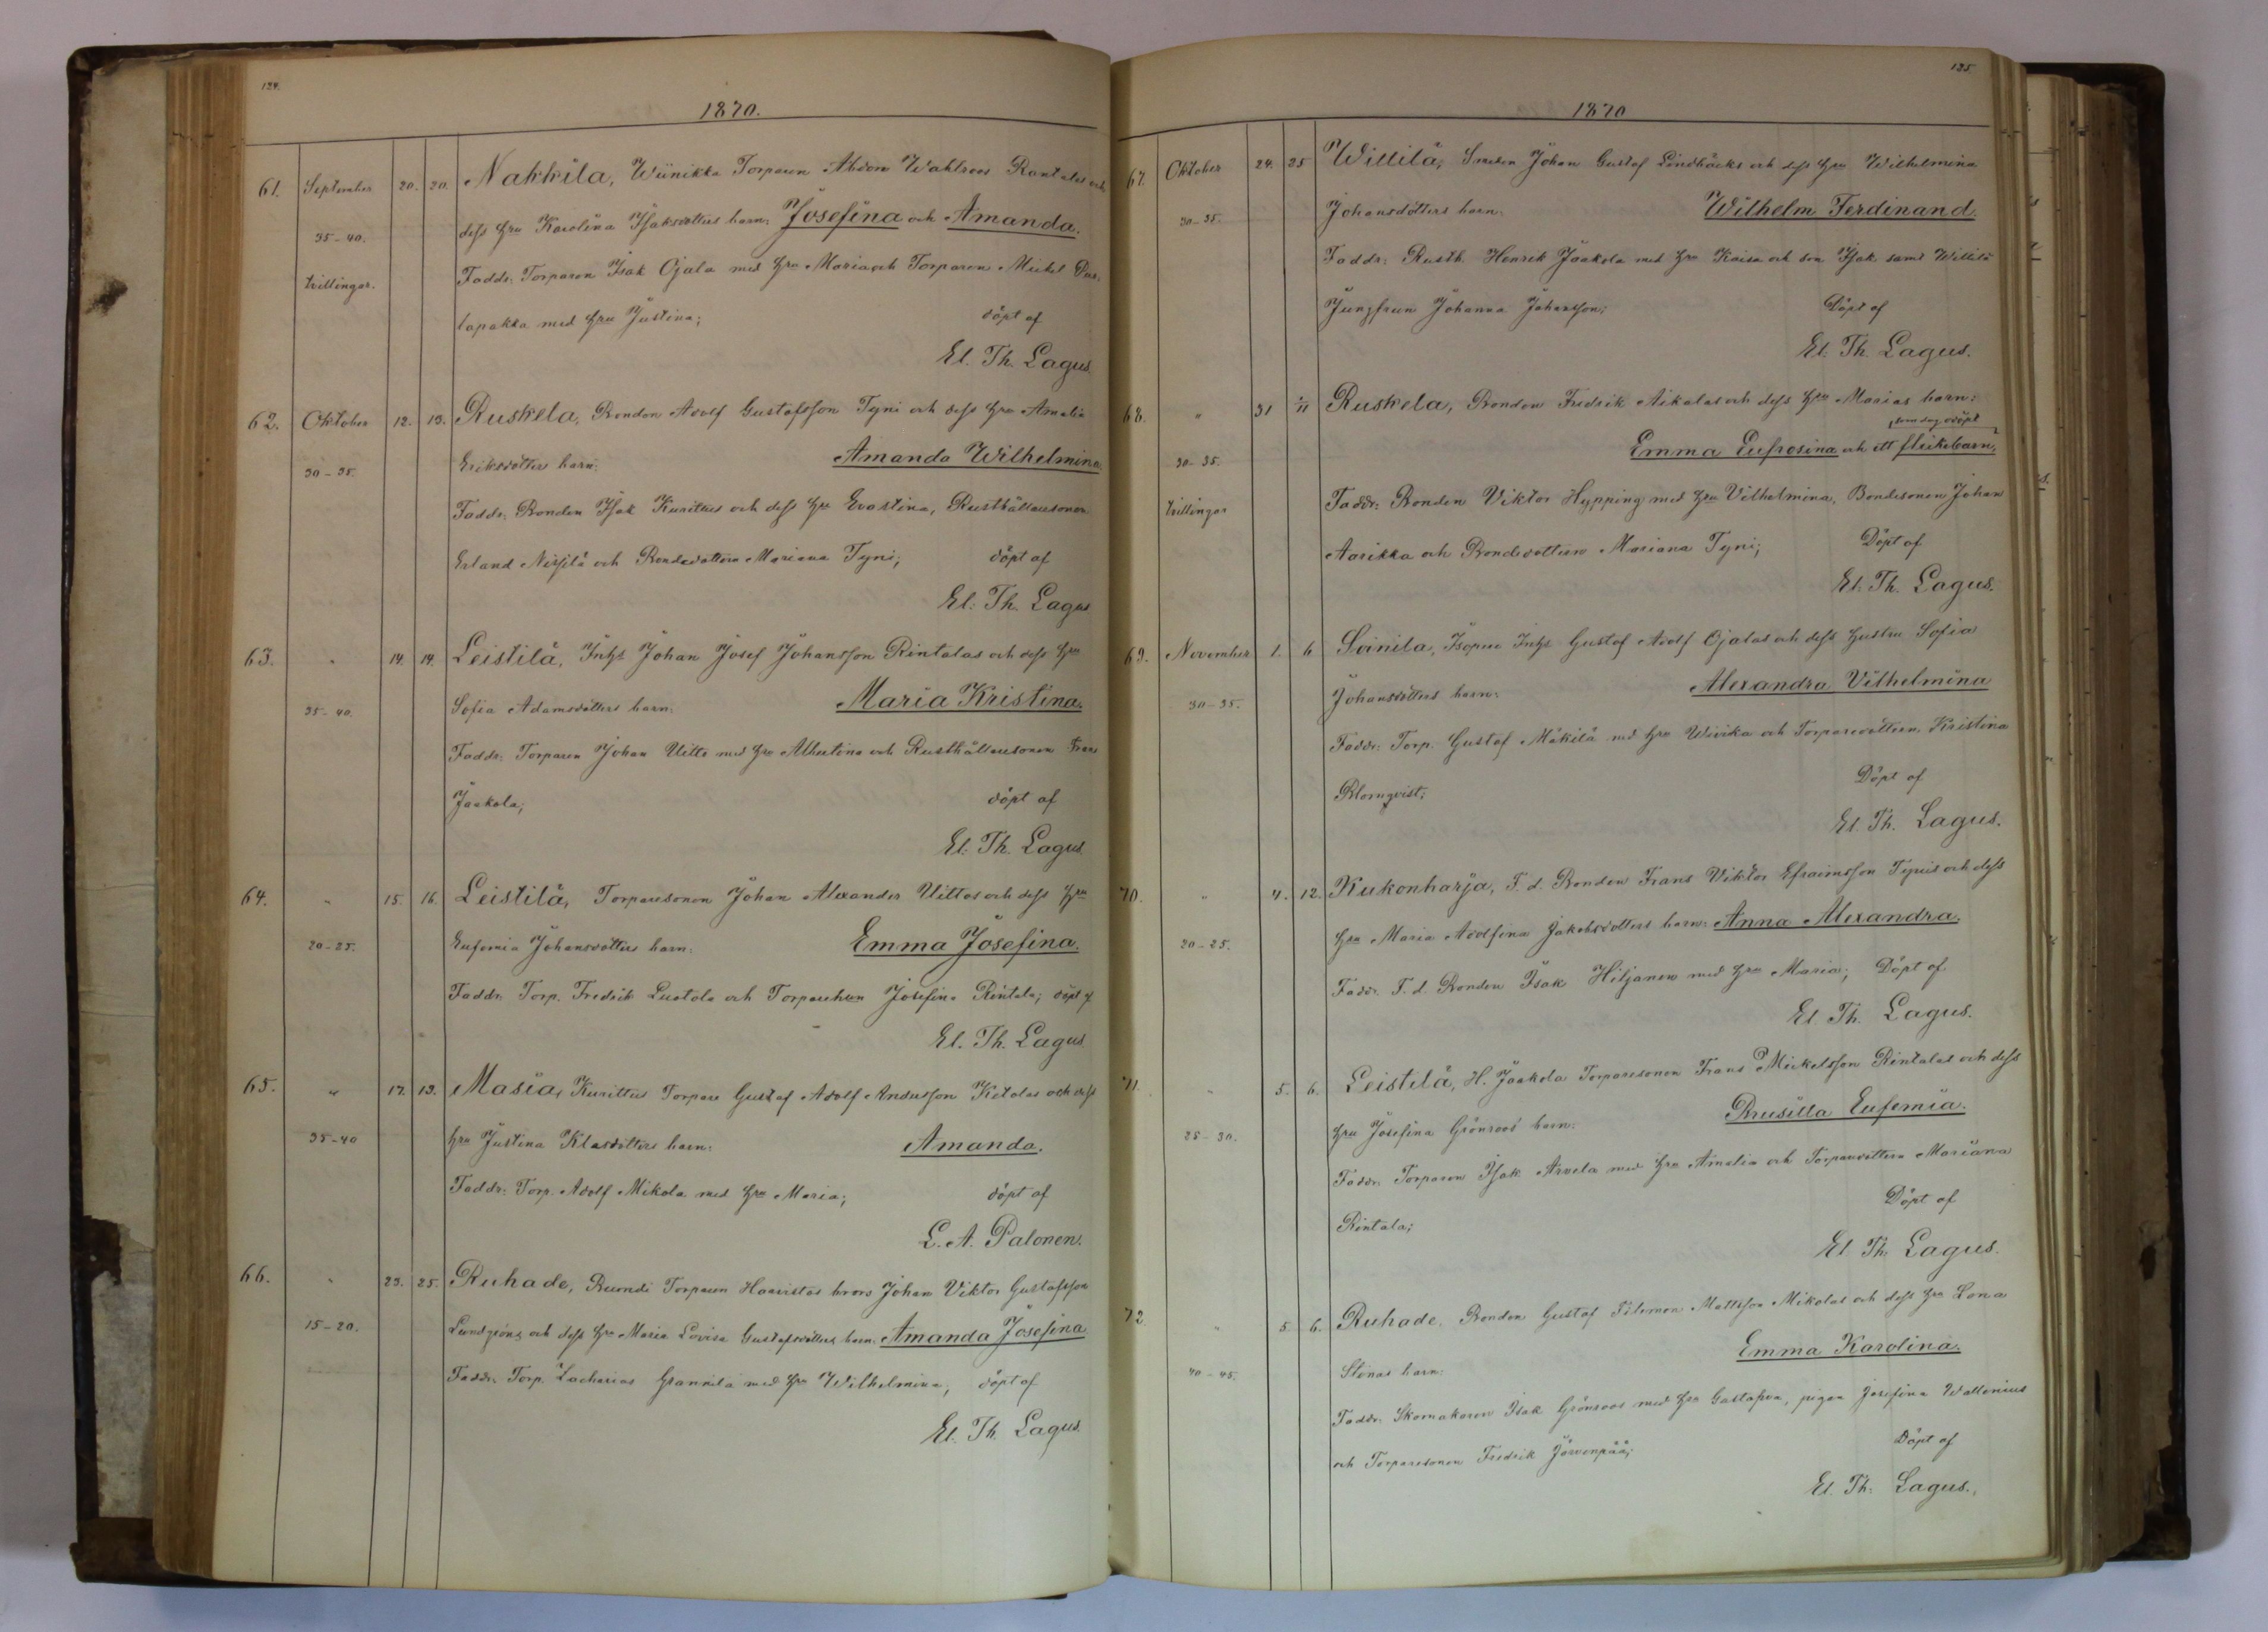 124.
1870.
61. September 20. 20. Nakkila, Wiinikka Torparen Abdon Wahlroos Rantalas och
35-40. dess hru Karolina Isaksdotters barn: Josefina och Amanda.
tvillingar. Faddr: Torparen Isak Ojala med hru Maria och Torparen Mickel Pas-
lapakka med hru Justina; döpt af
El. Th. Lagus.
62. Oktober 12. 13. Ruskela, Bonden Adolf Gustafsson Tyni och dess hru Amalia
30-35. Eriksdotters barn: Amanda Wilhelmina.
Faddr: Bonden Isak Kurittus och dess hru Evastina, Rusthållaresonen
Erland Nissilä och Bondedottern Mariana Tyni; döpt af
El. Th. Lagus
63. " 14. 14. Leistilä, Inhs Johan Josef Johansson Rintalas och dess hru
35-40. Sofia Adamsdotters barn: Maria Kristina.
Faddr: Torparen Johan Uitto med hru Albertina och Rusthållaresonen Frans
Jaakola; döpt af
El. Th. Lagus.
64. " 15. 16. Leistilä, Torparesonen Johan Alexander Uittos och dess hru
20-25. Eufemia Johansdotters barn: Emma Josefina.
Faddr: Torp. Fredrik Luotola och Torparehru Josefina Rintala; döpt af
El. Th. Lagus
65. " 17. 19. Masia, Kurittus Torpare Gustaf Adolf Andersson Ketolas och dess
35-40 hru Justina Klasdotters barn: Amanda.
Faddr: Torp. Adolf Mikola med hru Maria; döpt af
L. A. Palonen.
66. " 23. 25. Ruhade, Buondi Torparen Haavistos brors Johan Viktor Gustafsson
15-20. Lundgréns och dess hru Maria Lovisa Gustafsdotters barn: Amanda Josefina
Faddr: Torp. Zacharias Grannila med hru Wilhelmina; döpt af
El. Th. Lagus.
125.
1870
67. Oktober 24. 25 Willilä, Smeden Johan Gustaf Lindbäcks och dess hru Wilhelmina
30-35. Johansdotters barn: Wilhelm Ferdinand.
Faddr: Rusth. Henrik Jaakola med hru Kaisa och son Isak samt Willilä
Jungfrun Johanna Johansson; Döpt af
El. Th. Lagus.
68. " 31 1/11 Ruskela, Bonden Fredrik Aikalas och dess hru Marias barn:
som dog odöpt
30-35. Emma Eufrosina och ett flickebarn,
tvillingar Faddr: Bonden Viktor Hypping med hru Vilhelmina, Bondesonen Johan
Aarikka och Bondedottern Mariana Tyni; Döpt af
El. Th. Lagus.
69. November 1. 6 Soinila, Isopere Inhs Gustaf Adolf Ojalas och dess hustru Sofia
30-35. Johansdotters barn: Alexandra Vilhelmina
Faddr: Torp. Gustaf Mäkilä med hru Wivika och Torparedottern Kristina
Blomqvist; Döpt af
El. Th. Lagus.
70. " 4. 12. Kukonharja, F. d. Bonden Frans Viktor Efraimsson Tynis och dess
20-25. hru Maria Adolfina Jakobsdotters barn: Anna Alexandra.
Faddr. F. d. Bonden Isak Hiljanen med hru Maria; Döpt af
El. Th. Lagus.
71. " 5. 6. Leistilä, H. Jaakola Torparesonen Frans Mickelsson Rintalas och dess
25-30. hru Josefina Grönroos barn: Drusilla Eufemia.
Faddr: Torparen Isak Arvela med hru Amalia och Torparedottern Mariana
Rintala; Döpt af
El. Th. Lagus.
72. " 5. 6. Ruhade, Bonden Gustaf Filemon Mattsson Mikolas och dess hru Lona
40-45. Stinas barn: Emma Karolina.
Faddr: Skomakaren Isak Grönroos med hru Gustafva, pigan Josefina Wallenius
och Torparesonen Fredrik Järvenpää; Döpt af
El. Th. Lagus.